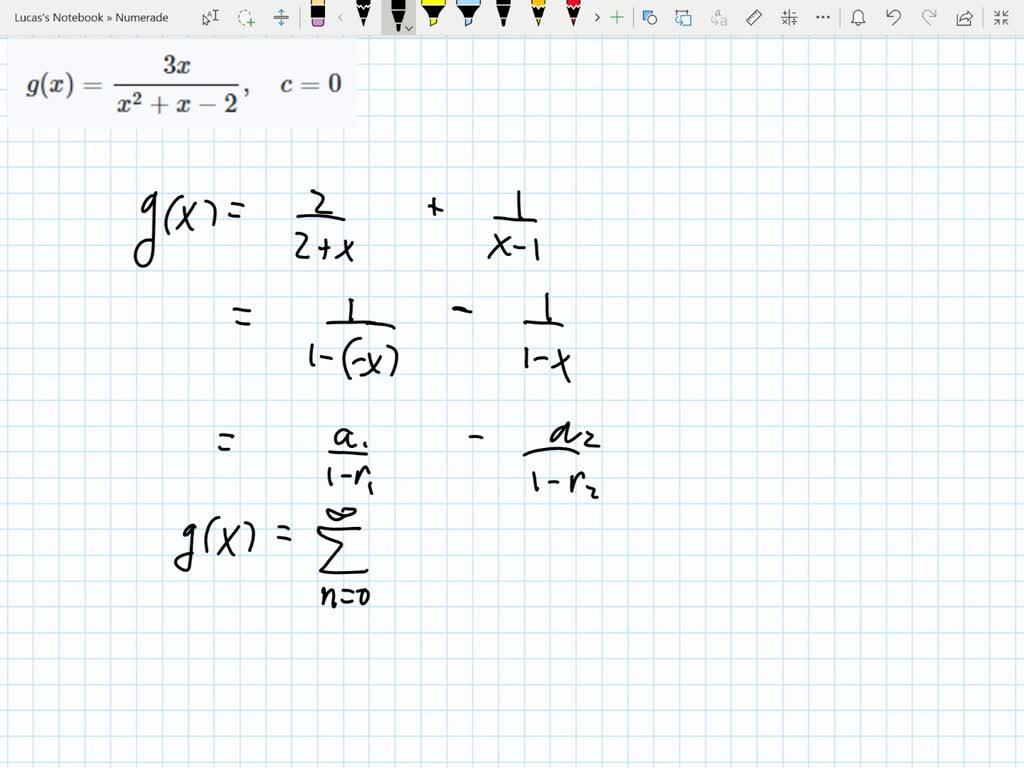 Lucas's Notebook » Numerade
g(x) = 3x / (x² + x − 2), c = 0
g(x) = 2/(2+x) + 1/(x-1)
= 1/(1-(-x)) - 1/(1-x)
= a₁/(1-r₁) - a₂/(1-r₂)
g(x) = ∞ Σ n=0